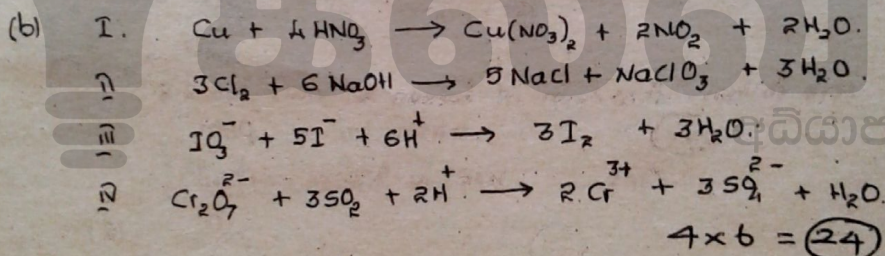 (b) I. Cu + 4 HNO₃ → Cu(NO₃)₂ + 2NO₂ + 2H₂O.
II 3Cl₂ + 6 NaOH → 5 NaCl + NaClO₃ + 3H₂O.
III IO₃⁻ + 5I⁻ + 6H⁺ → 3I₂ + 3H₂O.
IV Cr₂O₇²⁻ + 3SO₂ + 2H⁺ → 2Cr³⁺ + 3SO₄²⁻ + H₂O.
4 × 6 = 24